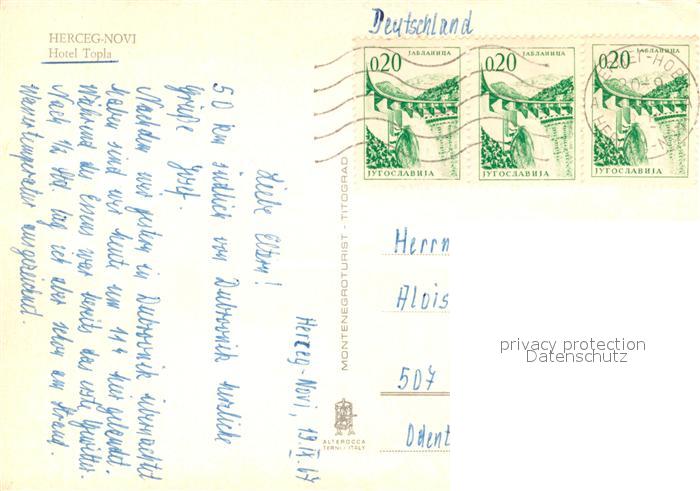 HERCEG-NOVI
Hotel Topla
Herceg-Novi, 19.IX.67
Liebe Eltern!
50 km südlich von Dubrovnik herzliche
Grüße Josef.
Nachdem wir gestern in Dubrovnik übernachtet
haben sind wir heute um 11h hier gelandet.
Während des Essens war bereits das erste Gewitter.
Jetzt 1/2 lieg ich aber schon am Strand.
Wassertemperatur ausgezeichnet.
MONTENEGROTURIST - TITOGRAD
ALTEROCCA
TERNI - ITALY
Deutschland
0,20 ЈАБЛАНИЦА
ЈУГОСЛАВИЈА
0,20 ЈАБЛАНИЦА
ЈУГОСЛАВИЈА
0,20 ЈАБЛАНИЦА
ЈУГОСЛАВИЈА
Herrn
Alois
507
Odent
privacy protection
Datenschutz